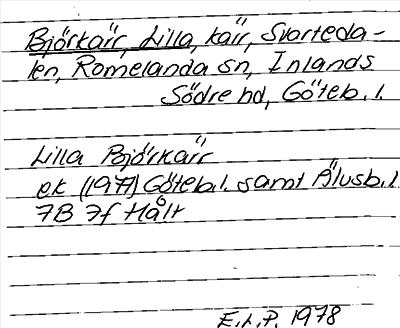 Björkärr, Lilla, kärr, Svarteda-
len, Romelanda sn, Inlands
Södre hd, Göteb. l.
Lilla Björkärr
ek (1977) Göteb. l. samt Älvsb. l
7B 7f Hålt
E.L.P. 1978